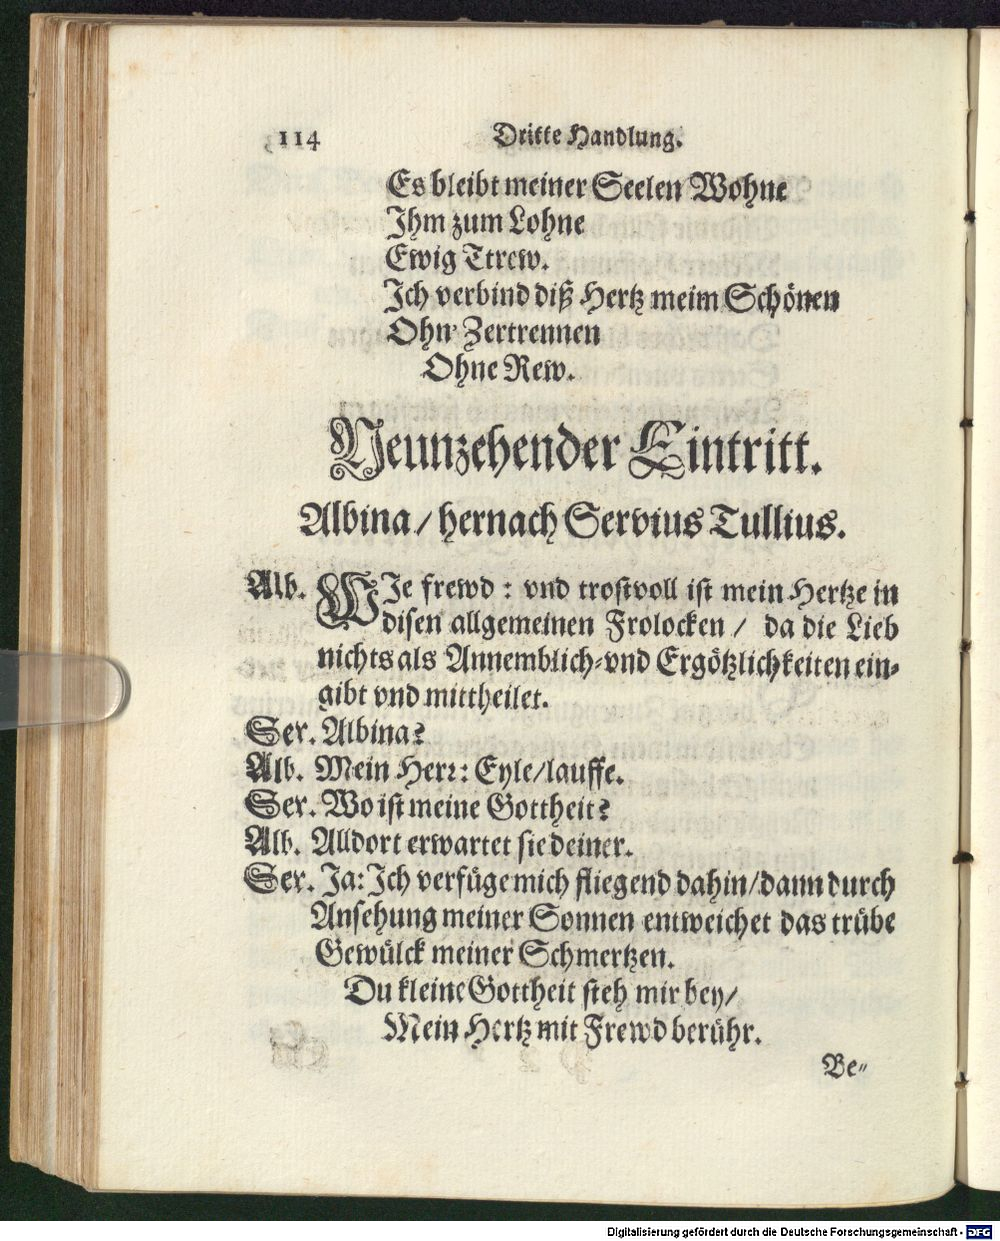 114 Dritte Handlung.
Es bleibt meiner Seelen Wohne
Ihm zum Lohne
Ewig Ttrew.
Ich verbind diß Hertz meim Schönen
Ohn' Zertrennen
Ohne Rew.
Neunzehender Eintritt.
Albina / hernach Servius Tullius.
Alb. WIe frewd : vnd trostvoll ist mein Hertze in
disen allgemeinen Frolocken / da die Lieb
nichts als Annemblich-vnd Ergötzlichkeiten ein-
gibt vnd mittheilet.
Ser. Albina?
Alb. Mein Herr: Eyle/lauffe.
Ser. Wo ist meine Gottheit?
Alb. Alldort erwartet sie deiner.
Ser. Ja: Ich verfüge mich fliegend dahin/dann durch
Ansehung meiner Sonnen entweichet das trübe
Gewülck meiner Schmertzen.
Du kleine Gottheit steh mir bey/
Mein Hertz mit Frewd berühr.
Be-
Digitalisierung gefördert durch die Deutsche Forschungsgemeinschaft - DFG